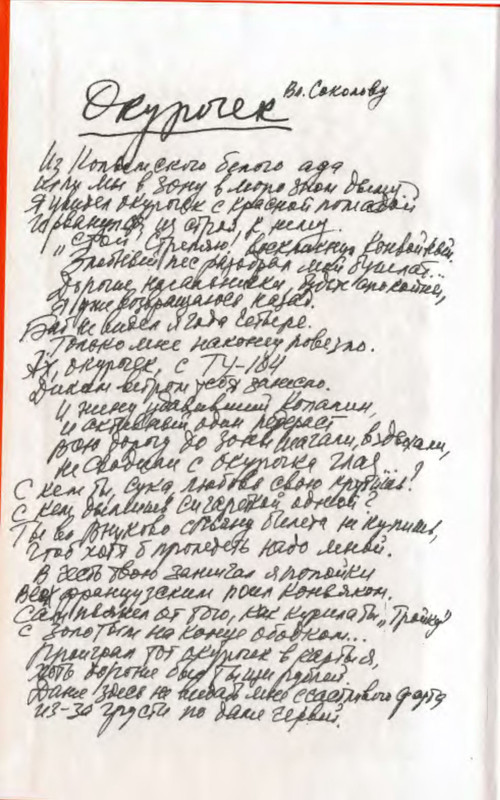 Окурочек
Вл. Соколову
Из Колымского белого ада
шли мы в зону в морозном дыму
Я увидел окурочек с красной помадой
И рванулся из строя к нему.
„Стой! Стреляю", воскликнул конвойный.
Злобный пёс разодрал мой бушлат...
Дорогие начальнички, будьте спокойны,
Я уже возвращаюсь назад.
Баб не видел я года четыре.
Только мне наконец повезло.
Ах, окурочек, с ТУ-104
Диким ветром тебя занесло.
И жену удавивший Копалин,
и активный один педераст
Всю дорогу до зоны шагали, вздыхали,
не сводили с окурочка глаз...
С кем ты, сука, любовь свою крутишь?
С кем дымишь сигареткой одной?
Ты во Внуково спьяну билета не купишь,
Чтоб хотя б пролететь надо мной.
В честь твою зажигал я попойки
Всех французским поил коньяком.
Сам пьянел от того, как курила ты „Тройку"
С золотым на конце ободком...
Проиграл тот окурочек в карты я,
хоть дороже был тыщи рублей.
Даже здесь не видать мне счастливого фарта
из-за грусти по даме червей.